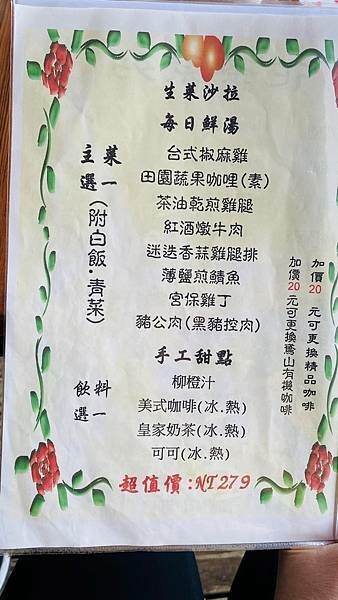 生菜沙拉
每日鮮湯
主菜選一(附白飯·青菜)
台式椒麻雞
田園蔬果咖哩(素)
茶油乾煎雞腿
紅酒燉牛肉
迷迭香蒜雞腿排
薄鹽煎鯖魚
宮保雞丁
豬公肉(黑豬控肉)
手工甜點
飲料選一
柳橙汁
美式咖啡(冰.熱)
皇家奶茶(冰.熱)
可可(冰.熱)
加價20元可更換精品咖啡
加價20元可更換鳶山有機咖啡
超值價:NT279